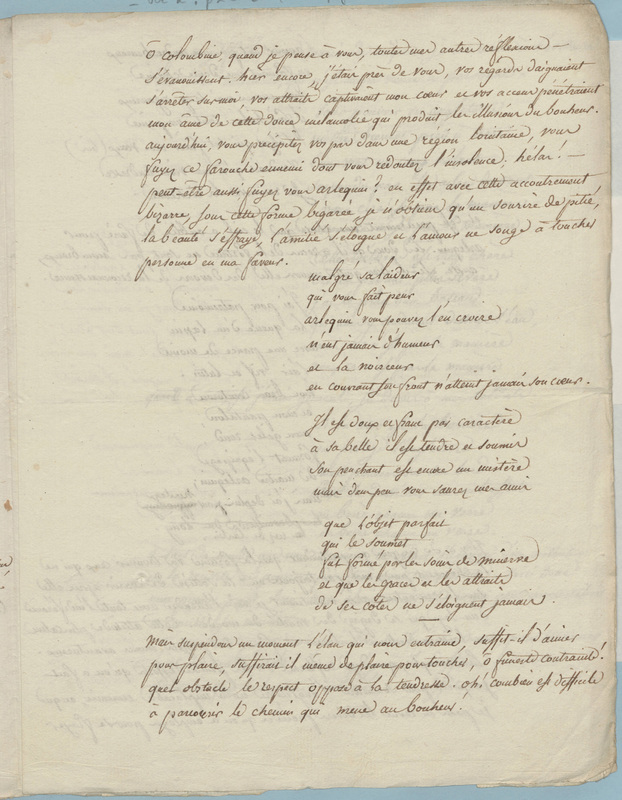 ô colombine, quand je pense à vous, toutes mes autres réflexions —
s'évanouissent. hier encore, j'étais près de vous, vos regards daignaient
s'arrêter sur moi, vos attraits captivaient mon cœur et vos accens pénétraient
mon âme de cette douce mélancolie qui produit les illusions du bonheur.
aujourd'hui, vous précipitez vos pas dans une région lointaine, vous
fuyez ce farouche ennemi dont vous redoutez l'insolence. hélas! —
peut-être aussi fuyez vous arlequin? en effet avec cette accoutrement
bizarre, sous cette forme bigarée, je n'obtiens qu'un sourire de pitié,
la beauté s'effraye, l'amitié s'éloigne et l'amour ne songe à toucher
personne en ma faveur.
malgré sa laideur
qui vous fait peur
arlequin vous pouvez l'en croire
n'eut jamais d'humeur
et la noirceur
en couvrant son front n'atteint jamais son cœur.
Il est doux et franc par caractère
à sa belle il est tendre et soumis
son penchant est encore un mistère
mais dans peu vous saurez mes amis
que l'objet parfait
qui le soumet
fut formé par les soins de minerve
et que les graces et les attraits
de ses cotés ne s'éloignent jamais.
Mais suspendons un moment l'élan qui nous entraine, suffit-il d'aimer
pour plaire, suffirait il même de plaire pour toucher, ô funeste contrainte!
quel obstacle le respect oppose à la tendresse. oh! combien est difficile
à parcourir le chemin qui mene au bonheur.